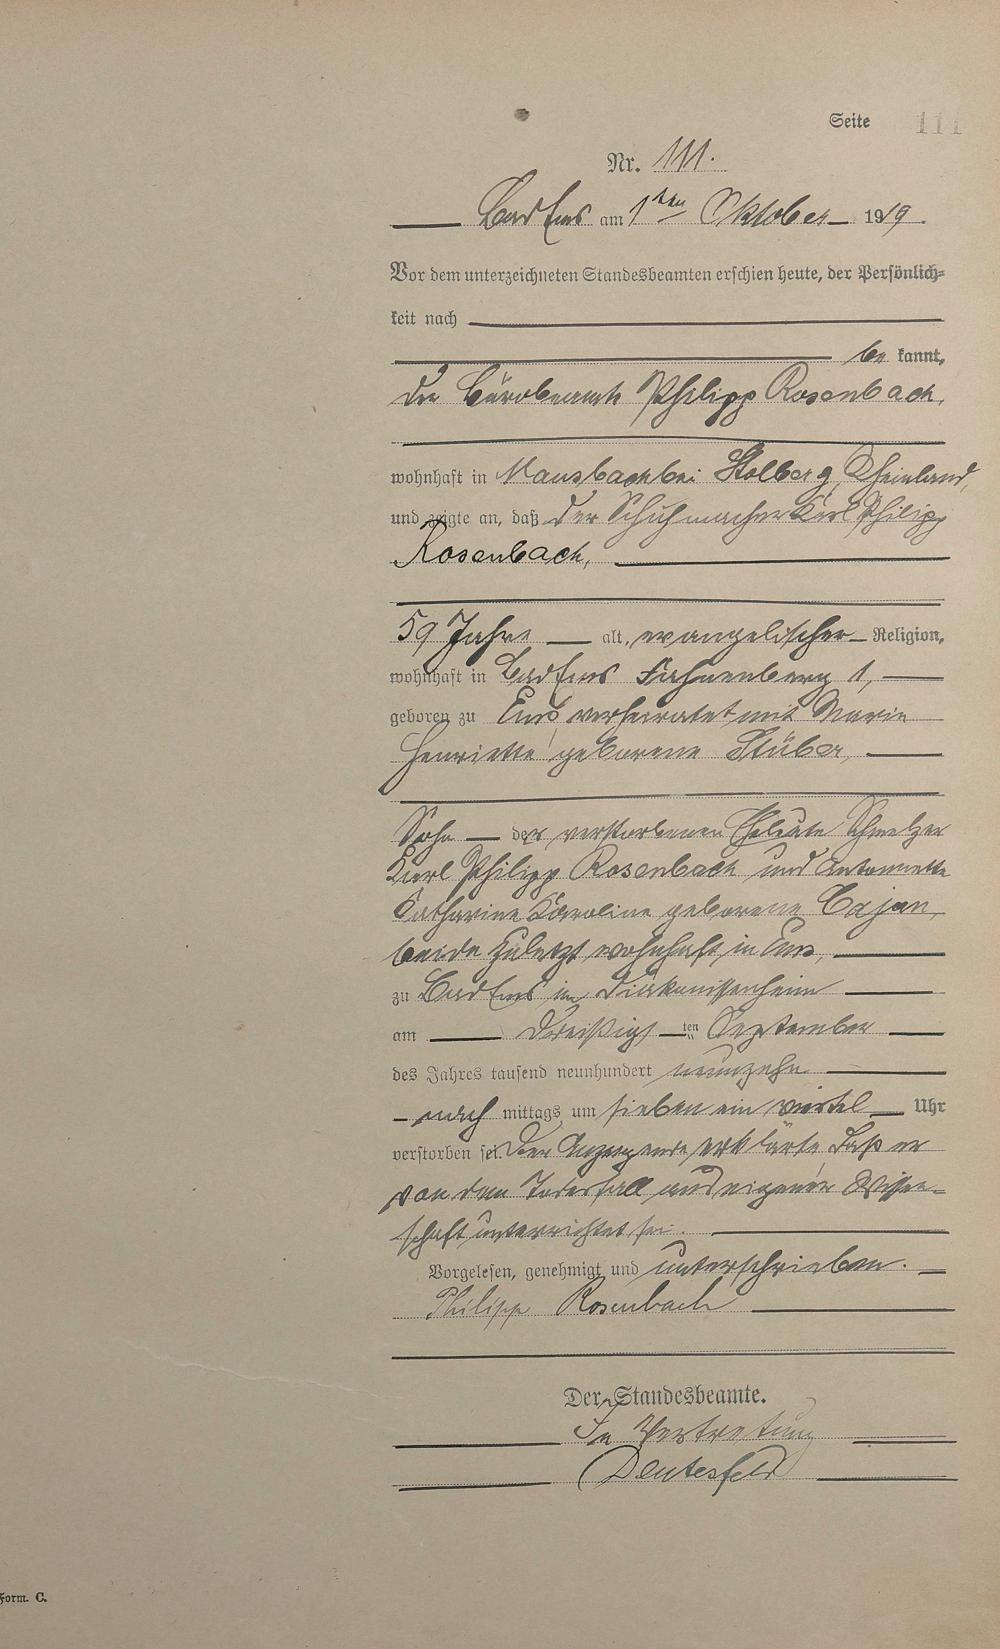 Seite 111
Nr. 111.
Bad Ems am 1ten Oktober 1919.
Vor dem unterzeichneten Standesbeamten erschien heute, der Persönlich-
keit nach
be kannt,
der Bürobeamte Philipp Rosenbach,
wohnhaft in Mausbach bei Stolberg, Rheinland,
und zeigte an, daß der Schuhmacher Karl Philipp
Rosenbach,
59 Jahre alt, evangelischer Religion,
wohnhaft in Bad Ems Fahnenberg 1,
geboren zu Ems, verheiratet mit Marie
Henriette geborene Stüber,
Sohn der verstorbenen Eheleute Schmelzer
Karl Philipp Rosenbach und Antonnette
Catharine Karoline geborene Cajan,
beide zuletzt wohnhaft in Ems,
zu Bad Ems im Diakonissenheim
am Dreißigsten September
des Jahres tausend neunhundert neunzehn
nach mittags um sieben ein viertel Uhr
verstorben sei. Der Anzeigende erklärte daß er
von dem Todesfall aus eigener Wissen-
schaft unterrichtet sei.
Vorgelesen, genehmigt und unterschrieben.
Philipp Rosenbach
Der Standesbeamte.
In Vertretung
Form. C.